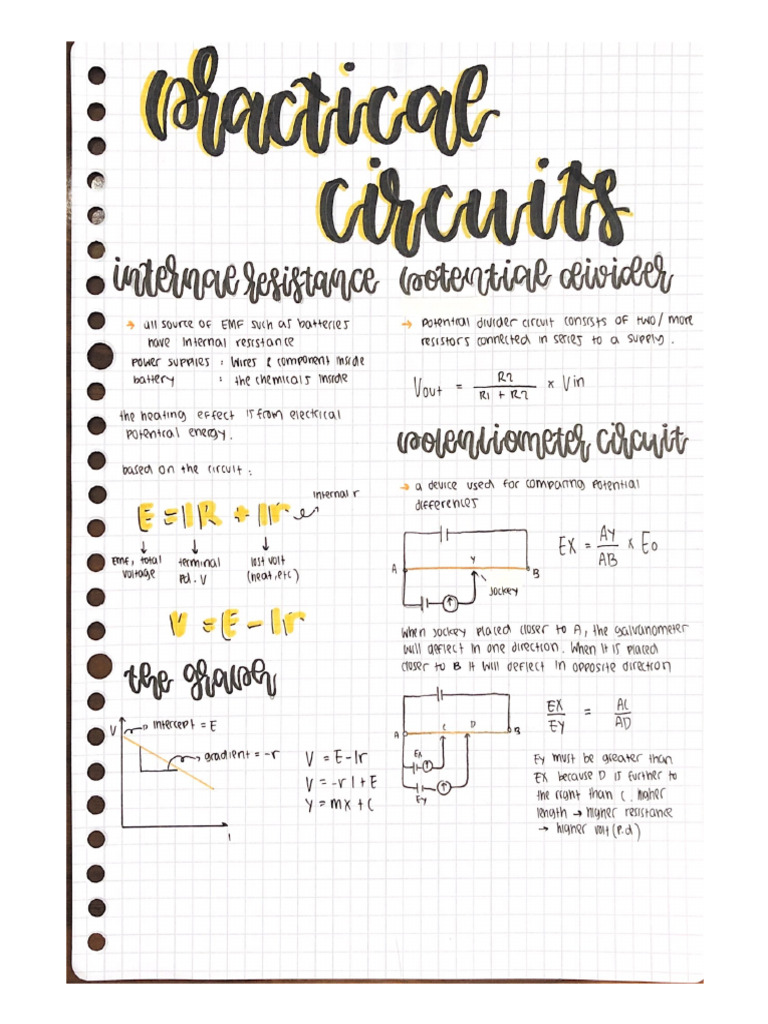 Practical
circuits
internal resistance
→ all source of EMF such as batteries
have internal resistance
power supplies : wires & component inside
battery : the chemicals inside
the heating effect is from electrical
potential energy.
based on the circuit :
internal r
E = IR + Ir
↓ ↓ ↓
Emf, total voltage
terminal Pd. V
lost volt (heat, etc)
V = E - Ir
the graph
V
intercept = E
gradient = -r
I
V = E - Ir
V = -r I + E
Y = mx + C
potential divider
→ potential divider circuit consists of two / more
resistors connected in series to a supply.
Vout = R2 / R1 + R2 × Vin
potentiometer circuit
→ a device used for comparing potential
differences
A
Y
B
Jockey
EX = AY / AB × Eo
When jockey placed closer to A, the galvanometer
will deflect in one direction. When it is placed
closer to B it will deflect in opposite direction
A
C
D
B
Ex
Ey
EX / EY = AC / AD
Ey must be greater than
EX because D is further to
the right than C. higher
length → higher resistance
→ higher volt (p.d)